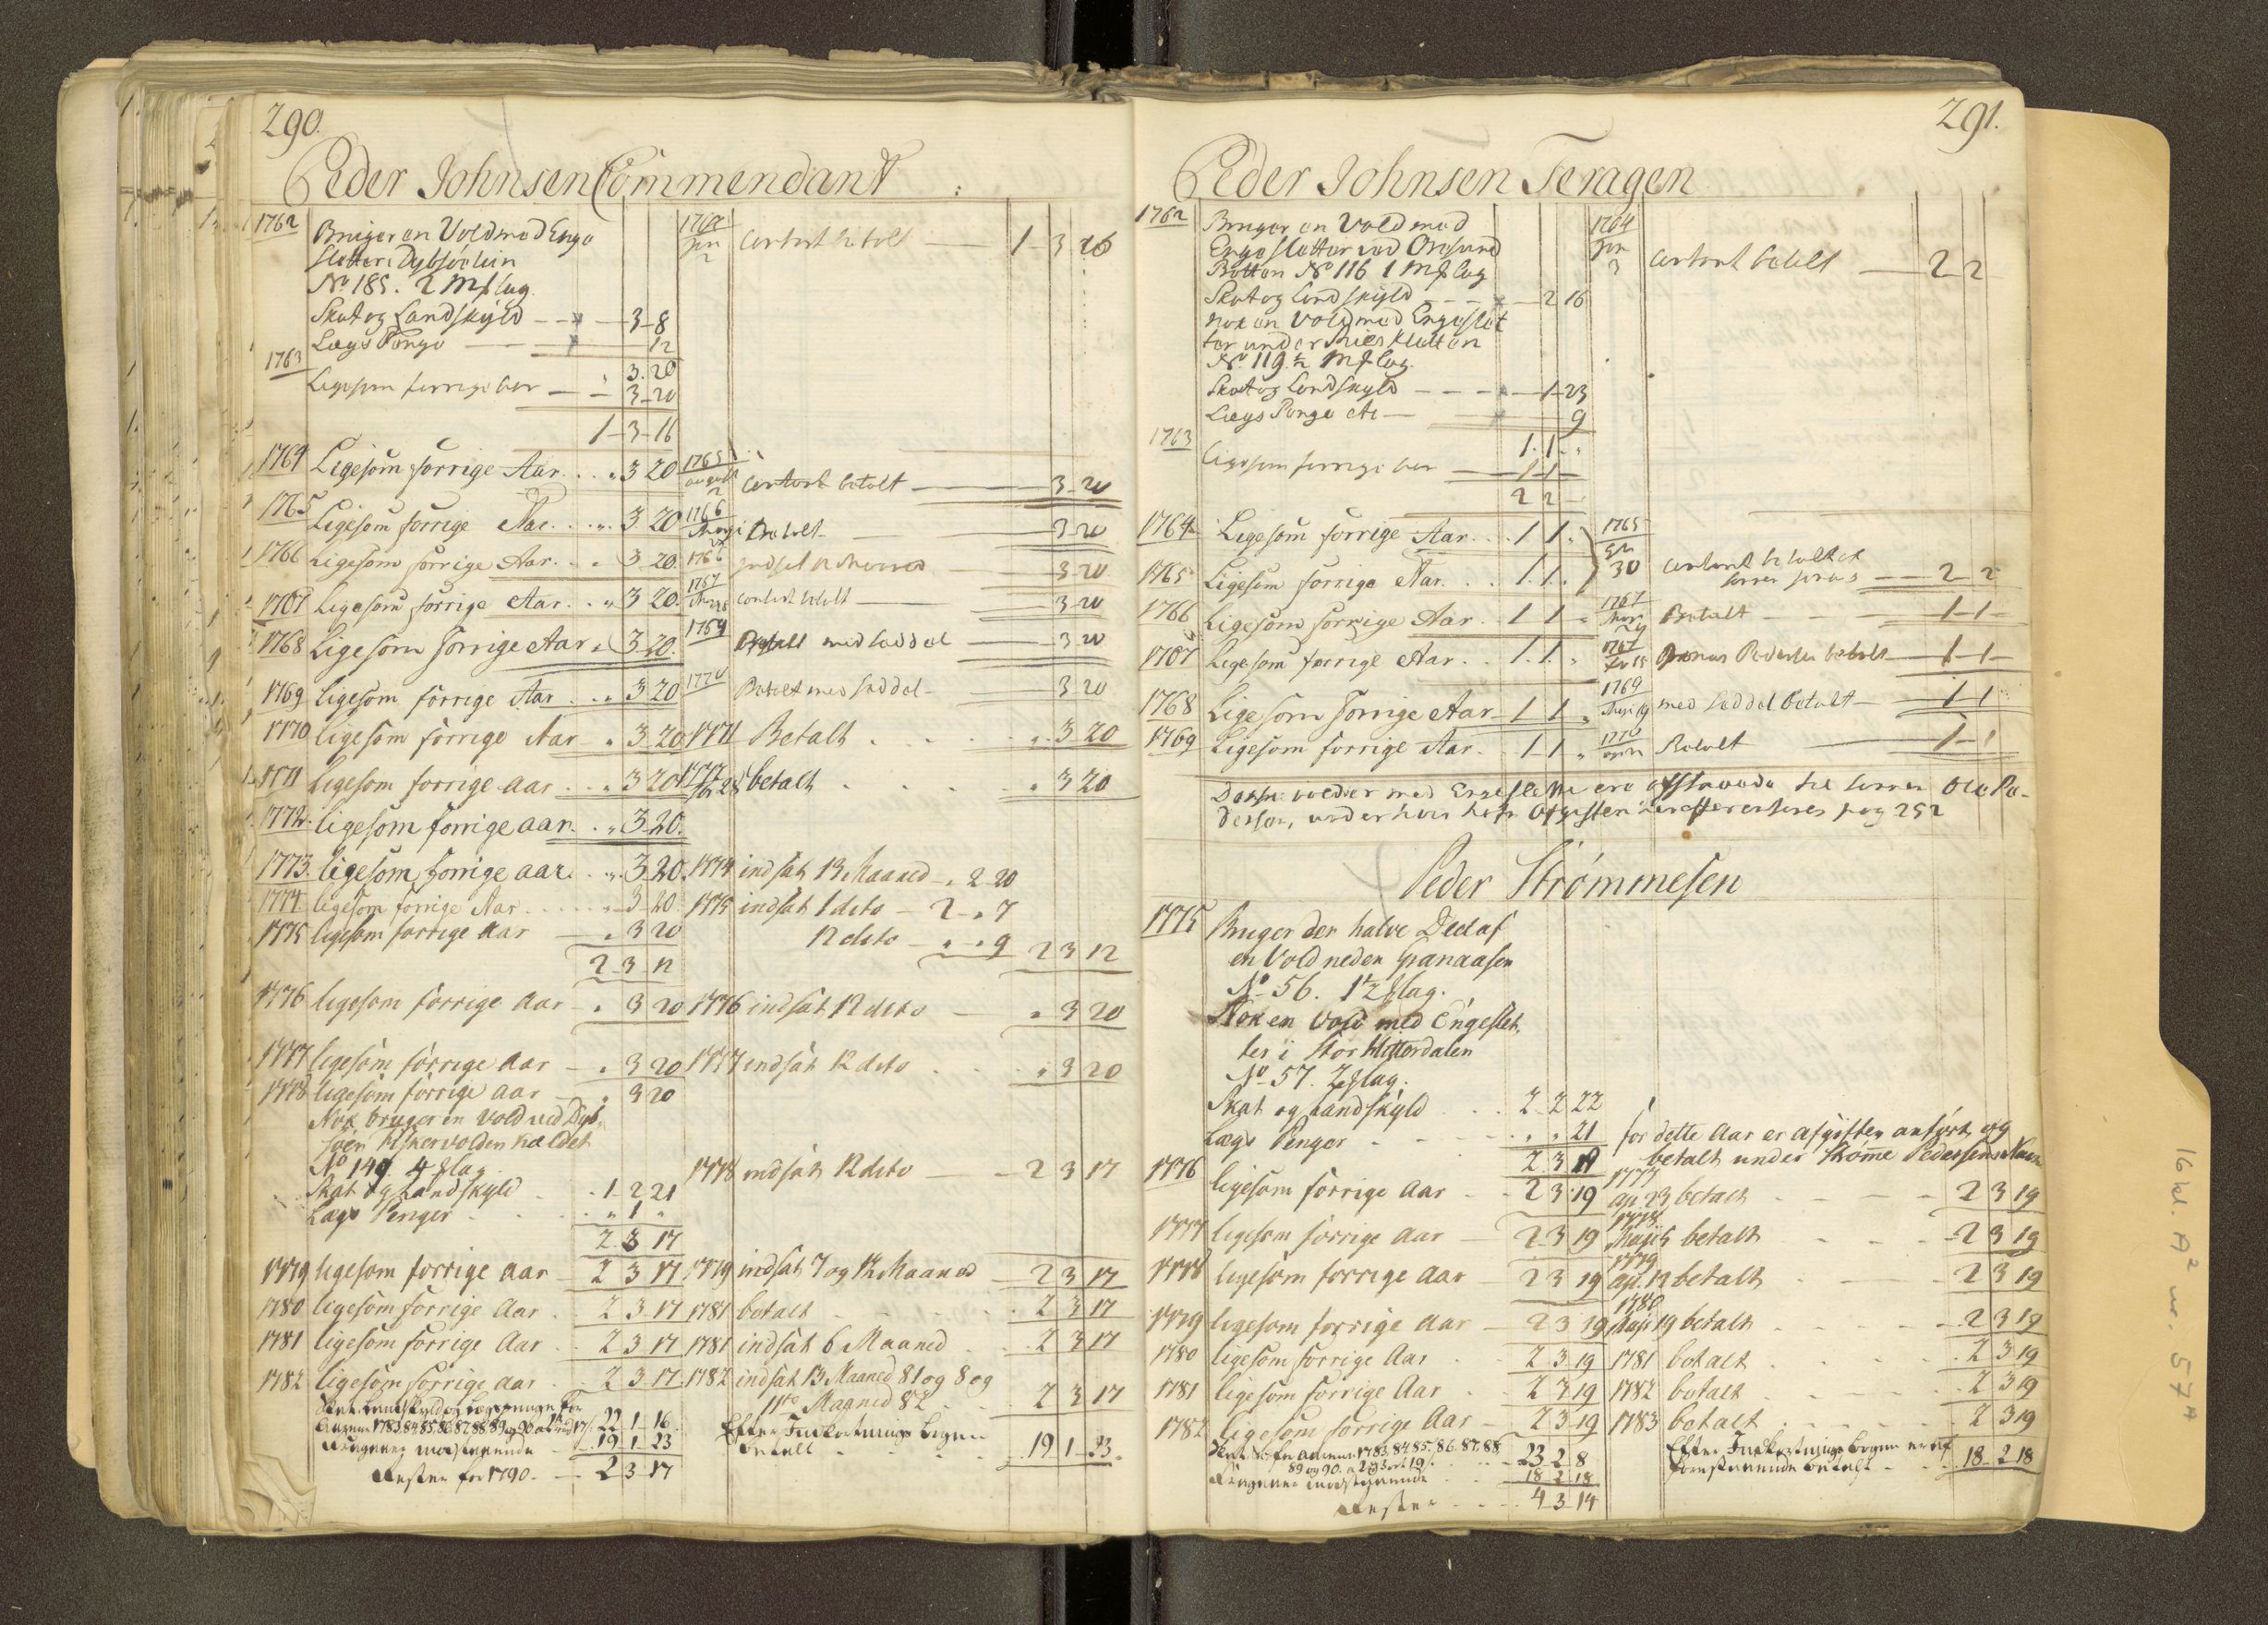 290.
Peder Johnsen Commendant
1762 Bruger en Vold med Enge
sletter i Dybsiøeluin
No 185. 2 Mƒlag.
Skat og Landskÿld 3 8
Lægs Penge 12
3. 20
1763 Ligesom forrige Aar 3 20
1 3 16
1764 Ligesom forrige Aar. . . „ 3 20
1765 Ligesom forrige Aar. . . „ 3 20
1766 Ligesom forrige Aar. . „ 3 20.
1767 Ligesom forrige Aar. . „ 3 20.
1768 Ligesom forrige Aar „ 3 20.
1769 ligesom forrige Aar . . „ 3 20
1770 ligesom forrige Aar „ 3 20
1771 ligesom forrige aar . . „ 3 20
1772. ligesom forrige aar. . „ 3 20.
1773. ligesom forrige aar. . „ 3 20.
1774 ligesom forrige Aar . . . „ 3 20.
1775 ligesom forrige aar „ 3 20
2 3 12
1776 ligesom forrige aar „ 3 20
1777 ligesom forrige aar „ 3 20
1778 ligesom forrige aar „ 3 20
Nok bruger en vold ved Dyb-
søen Fiskervolden kaldet
No 149 4 ƒlag
Skat og Landskyld . . 1 2 21
Lægs Penger . . . „ 1 „
2 3 17
1779 ligesom forrige aar 2 3 17
1780 ligesom forrige Aar . . 2 3 17
1781 ligesom forrige Aar . . 2 3 17
1782 ligesom forrige aar . . 2 3 17
Skat Landskyld og Lægspenge for
Aarene 1783. 84. 85. 86. 87. 88. 89 og 90 22 1 16
Fragaaer modstaaende 19 1 23
Rester for 1790. 2 3 17
1764 Jan 2 Contant betalt 1 3 16
1765 august 2 Contant betalt 3 20
1766 Betalt 3 20
1766 3 20
1767 contant betalt 3 20
1769 Betalt med Seddel 3 20
1770 Betalt med Seddel 3 20
1771 Betalt . . . . „ 3 20
1772 28 betalt . . . . „ 3 20
1774 indsat 13 Maaned „ 2 20
1775 indsat 1 dito 2 „ 7
12 dito „ „ 9 2 3 12
1776 indsat 12 dito „ 3 20
1777 indsat 12 dito . . „ 3 20
1778 indsat 12 dito 2 3 17
1779 indsat 7 og 12 Maaned 2 3 17
1781 betalt . . . 2 3 17
1781 indsat 6 Maaned . . 2 3 17
1782 indsat 13 Maaned 81 og 8 og
11te Maaned 82 . . 2 3 17
Efter Indkortnings Bogen
betalt . . 19 1 23.
291.
Peder Johnsen Feragen
1762 Bruger en Vold med
Enge Sletter ved Oresund
Botten No 116 1 Mƒlag
Skat og Landskyld 2 16
Nok en Vold med Engeslet
ter under
No 119 ½ Mƒlag.
Skat og Landskyld 1 23
Lægs Penge 9
1. 1. „
1763 Ligesom forrige Aar 1 1
2 2
1764 Ligesom forrige Aar. . . 1 1 „
1765 Ligesom forrige Aar. . . 1. 1. „
1766 Ligesom forrige Aar . . 1 1 „
1767 Ligesom forrige Aar. . . 1. 1. „
1768 Ligesom forrige Aar 1 1 „
1769 Ligesom forrige Aar . . 1 1 „
1764 Jan 3 contant betalt 2 2
1765 30 contant betalt 2 2
1767 29 Betalt 1 1
1767 15 Pedersen betalt 1 1
1769 19 med Seddel betalt 1 1
1770 Betalt 1 1
Disse volder med Engeslette ere afstaaede til Sønnen Ole Pe-
dersen, under hvis Afgiften herefter anføres pag 252
Peder Strømmesen
1775 Bruger den halve Deel af
en Vold neden Granaasen
No 56. 1½ ƒlag.
Nok en Vold med Engeslet
ter i Stor Hitterdalen
No 57. 2 ƒlag.
Skat og Landskÿld . . 2 2 22
Lægs Penger . . . „ „ 21
2 3 19
for dette Aar er afgiften anført og
betalt under Strømme Pedersens Navn
1776 ligesom forrige aar . . 2 3 19 1777 ap: 23 betalt . . . 2 3 19
1777 ligesom forrige aar 2 3 19 1778 Maji 5 betalt . . . 2 3 19
1778 ligesom forrige aar 2 3 19 1779 apl. 12 betalt . . . 2 3 19
1779 ligesom forrige aar 2 3 19 1780 Maji 19 betalt . . . 2 3 19
1780 ligesom forrige Aar . . 2 3 19 1781 betalt . . . . 2 3 19
1781 ligesom forrige Aar . . 2 3 19 1782 betalt . . . . 2 3 19
1782 ligesom forrige Aar 2 3 19 1783 betalt . . . . 2 3 19
for Aarene 1783. 84. 85. 86. 87. 88
89 og 90. a 2 3 ort 19 . . 23 2 8
Fragaaer modstaaende . . 18 2 18
Rester . . . 4 3 14
Efter Indkortnings Bogen er af
foranstaaende betalt . . 18 2 18
16 kl. A² nr. 57 A